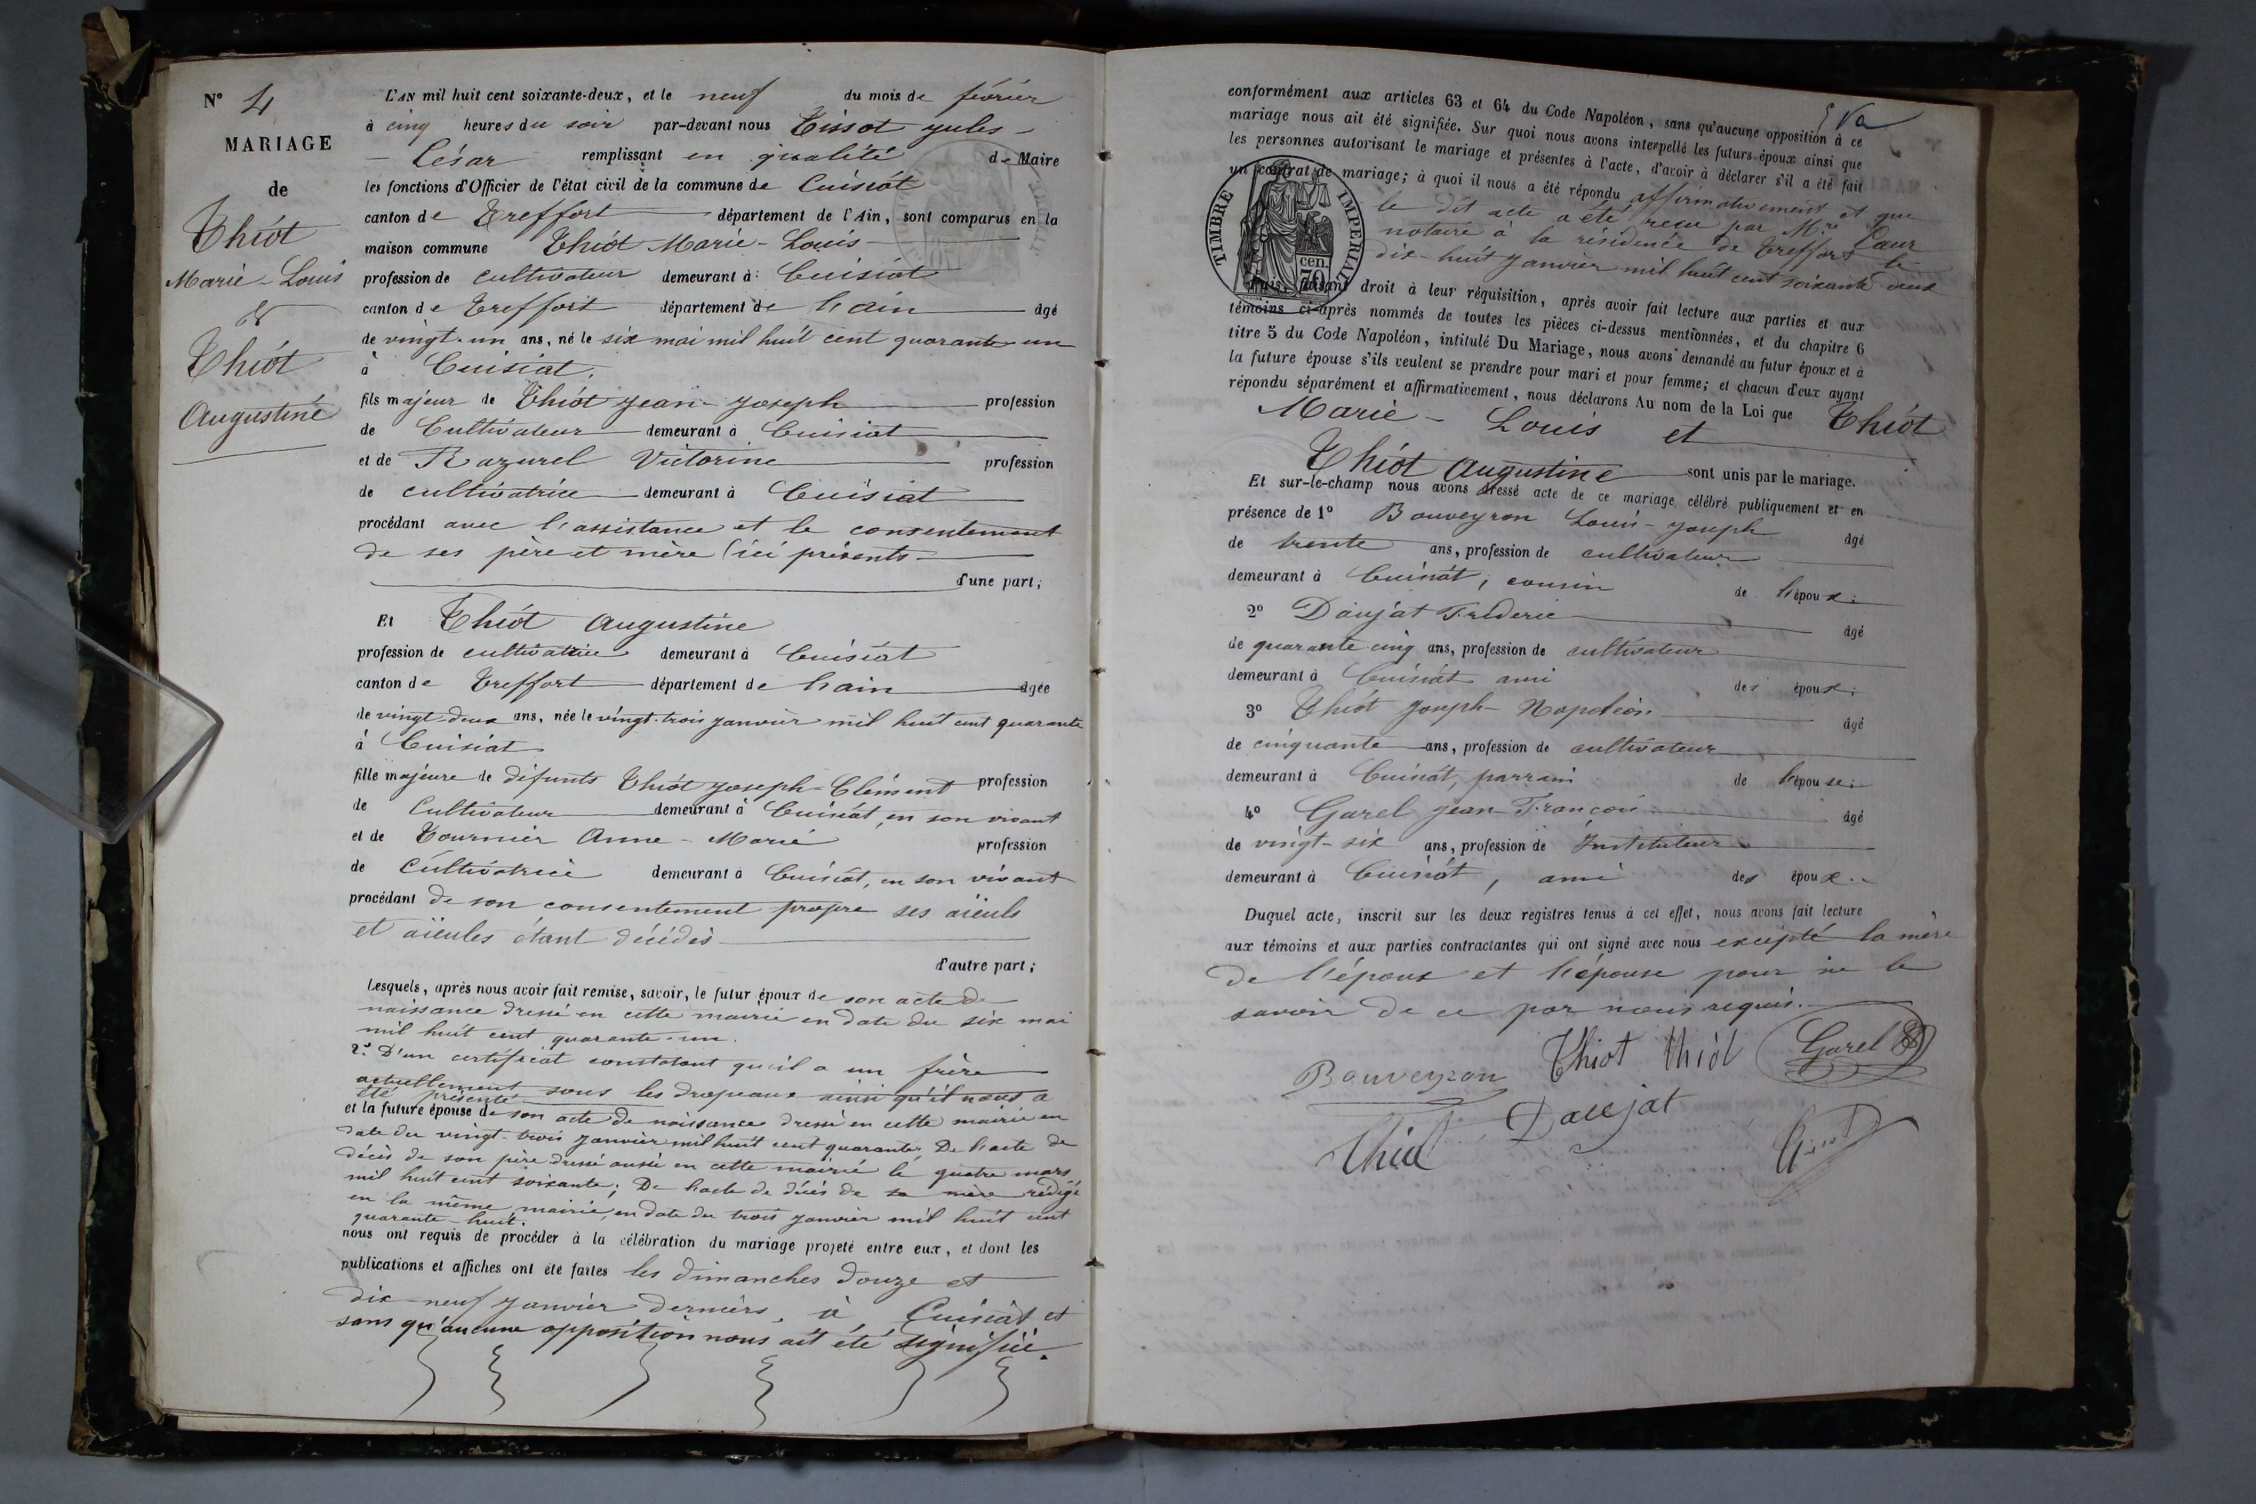 N° 4
MARIAGE
de
Thiot
Marie-Louis
&
Thiot
Augustine
L'AN mil huit cent soixante-deux, et le neuf du mois de février
à cinq heures du soir par-devant nous Tissot Jules-
César remplissant en qualité de Maire
les fonctions d'Officier de l'état civil de la commune de Cuisiat
canton de Treffort département de l'Ain, sont comparus en la
maison commune Thiot Marie-Louis
profession de cultivateur demeurant à Cuisiat
canton de Treffort département de l'ain âgé
de vingt-un ans, né le six mai mil huit cent quarante un
à Cuisiat.
fils majeur de Thiot Jean-Joseph profession
de Cultivateur demeurant à Cuisiat
et de Razurel Victorine profession
de cultivatrice demeurant à Cuisiat
procédant avec l'assistance et le consentement
de ses père et mère ici présents
d'une part;
Et Thiot Augustine
profession de cultivatrice demeurant à Cuisiat
canton de Treffort département de l'ain âgée
de vingt-deux ans, née le vingt-trois janvier mil huit cent quarante
à Cuisiat
fille majeure de défunts Thiot Joseph-Clément profession
de Cultivateur demeurant à Cuisiat, en son vivant
et de Tournier Anne-Marie profession
de Cultivatrice demeurant à Cuisiat, en son vivant
procédant de son consentement propre ses aïeuls
et aïeules étant décédés
d'autre part;
Lesquels, après nous avoir fait remise, savoir, le futur époux de son acte de
naissance dressé en cette mairie en date du six mai
mil huit cent quarante-un.
2° D'un certificat constatant qu'il a un frère
actuellement sous les drapeaux ainsi qu'il nous a
été présenté
et la future épouse de son acte de naissance dressé en cette mairie en
date du vingt-trois janvier mil huit cent quarante, De l'acte de
décès de son père dressé aussi en cette mairie le quatre mars
mil huit cent soixante; De l'acte de décès de sa mère rédigé
en la même mairie, en date du trois janvier mil huit cent
quarante-huit.
nous ont requis de procéder à la célébration du mariage projeté entre eux, et dont les
publications et affiches ont été faites les dimanches douze et
dix-neuf janvier derniers, à Cuisiat et
sans qu'aucune opposition nous ait été signifiée.
conformément aux articles 63 et 64 du Code Napoléon, sans qu'aucune opposition à ce
mariage nous ait été signifiée. Sur quoi nous avons interpellé les futurs époux ainsi que
les personnes autorisant le mariage et présentes à l'acte, d'avoir à déclarer s'il a été fait
un contrat de mariage; à quoi il nous a été répondu affirmativement et que
le dit acte a été reçu par Mre Laur
notaire à la résidence de Treffort le
dix-huit janvier mil huit cent soixante-deux
TIMBRE IMPERIAL
70 cen.
Puis, faisant droit à leur réquisition, après avoir fait lecture aux parties et aux
témoins ci-après nommés de toutes les pièces ci-dessus mentionnées, et du chapitre 6
titre 5 du Code Napoléon, intitulé Du Mariage, nous avons demandé au futur époux et à
la future épouse s'ils veulent se prendre pour mari et pour femme; et chacun d'eux ayant
répondu séparément et affirmativement, nous déclarons Au nom de la Loi que Thiot
Marie-Louis et
Thiot Augustine sont unis par le mariage.
Et sur-le-champ nous avons dressé acte de ce mariage, célébré publiquement et en
présence de 1° Bouveyron Louis-Joseph âgé
de trente ans, profession de cultivateur
demeurant à Cuisiat, cousin de l'époux;
2° Daujat Fréderic âgé
de quarante-cinq ans, profession de cultivateur
demeurant à Cuisiat ami des époux;
3° Thiot Joseph-Napoléon âgé
de cinquante ans, profession de cultivateur
demeurant à Cuisiat, parrain de l'épouse;
4° Garel Jean-François âgé
de vingt-six ans, profession de Instituteur
demeurant à Cuisiat, ami des époux.
Duquel acte, inscrit sur les deux registres tenus à cet effet, nous avons fait lecture
aux témoins et aux parties contractantes qui ont signé avec nous excepté la mère
de l'époux et l'épouse pour ne le
savoir de ce par nous requis.
Bouveyron Thiot thiot Garel
Thiot Daujat